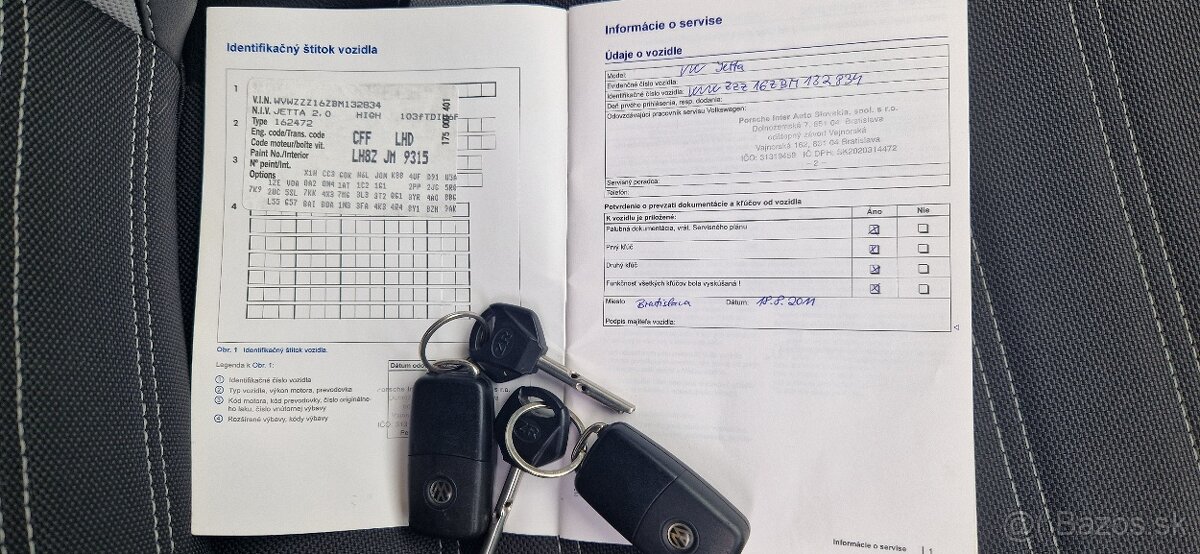 Identifikačný štítok vozidla
1
V.I.N. WVWZZZ16ZBM132834
N.I.V. JETTA 2.0 HIGH 103FTDIDS6F
Type 162472
2
Eng. code/Trans. code CFF LHD
Code moteur/boîte vit.
Paint No./Interior LH8Z JM 9315
3
N° peint/Int.
175 007 401
Options
4
Obr. 1 Identifikačný štítok vozidla.
Legenda k Obr. 1:
1 Identifikačné číslo vozidla
2 Typ vozidla, výkon motora, prevodovka
3 Kód motora, kód prevodovky, číslo originálne-
ho laku, číslo vnútornej výbavy
4 Rozšírené výbavy, kódy výbavy
Informácie o servise
Údaje o vozidle
Model: VW Jetta
Evidenčné číslo vozidla:
Identifikačné číslo vozidla: WVWZZZ16ZBM132834
Deň prvého prihlásenia, resp. dodania:
Odovzdávajúci pracovník servisu Volkswagen:
Porsche Inter Auto Slovakia, spol. s r.o.
Dolnozemská 7, 851 04 Bratislava
odštepný závod Vajnorská
Vajnorská 162, 831 04 Bratislava
IČO: 31319459 IČ DPH: SK2020314472
- 2 -
Servisný poradca:
Telefón:
Potvrdenie o prevzatí dokumentácie a kľúčov od vozidla
K vozidlu je priložené: Áno Nie
Palubná dokumentácia, vrát. Servisného plánu
Prvý kľúč
Druhý kľúč
Funkčnosť všetkých kľúčov bola vyskúšaná !
Miesto Bratislava Dátum: 18.8.2011
Podpis majiteľa vozidla:
Informácie o servise 1
Bazos.sk